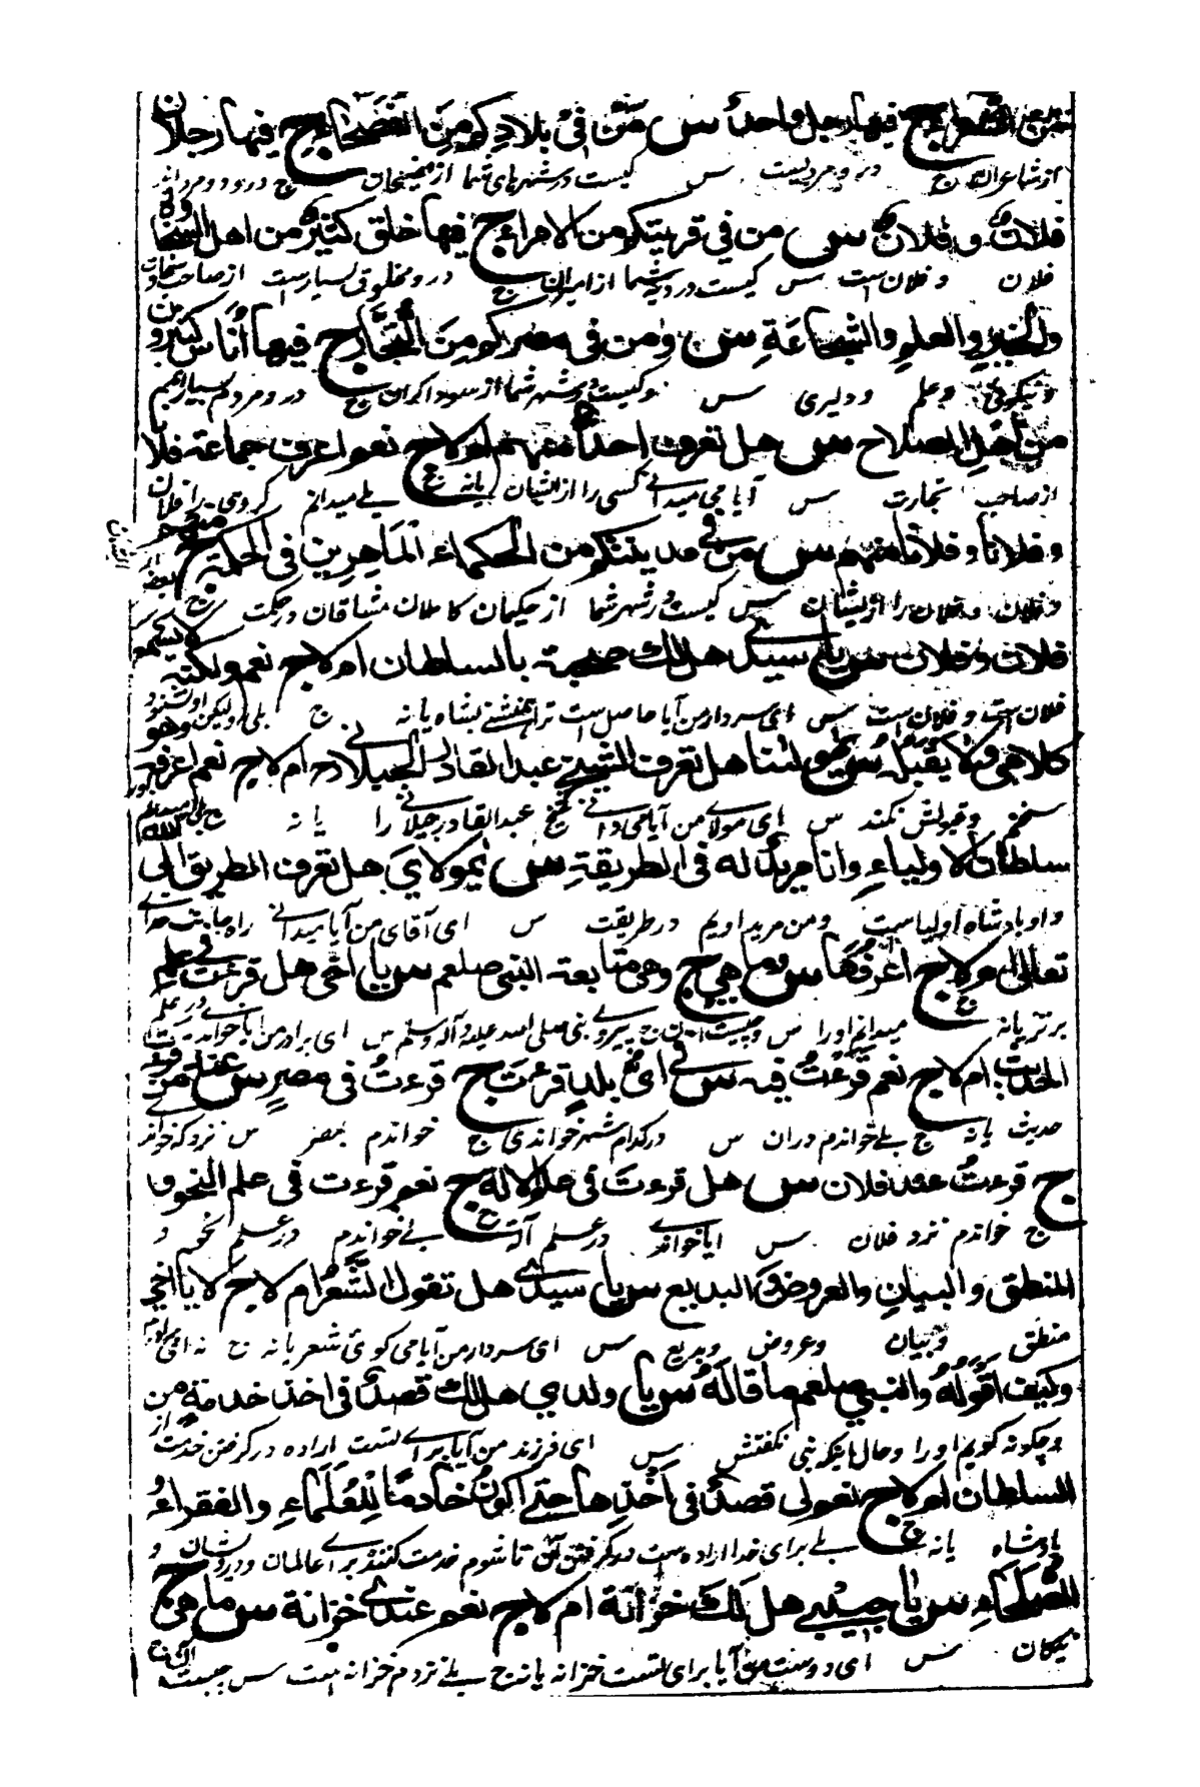 من الشعراء ج فيها رجل واحد س من في بلادكم من الفصحاء ج فيها رجلان
از شاعران ج در و مردیست س کیست در شهرهای شما از فصیحان ج در و دو مردانند
فلان وفلان س من في قريتكم من الامراء ج فيها خلق كثير من اهل السخاء
فلان و فلان است س کیست در دیه شما از امیران ج در و مخلوقی بسیارست از صاحب سخاوت
والخير والعلم والشجاعة س ومن في مصركم من التجار ج فيها أناس كثيرون
و نیکوئی و علم و دلیری س و کیست در شهر شما از سوداگران ج در و مردم بسیار اند
من اهل الصلاح س هل تعرف احدا منهم ام لا ج نعم اعرف جماعة فلانا
از صاحب تجارت س آیا می میدانی کسی را از ایشان یا نه ج بلے میدانم گروهی را فلان
وفلانا وفلانا منهم س من في مدينتكم من الحكماء الماهرين في الحكمة ج
و فلان و فلان را از یشان س کیست در شهر شما از حکیمان کاملان مشاقان در حکمت ج
فلان وفلان س يا سيدي هل لك صحبة بالسلطان ام لا ج نعم ولكنه لا يسمع
فلان است و فلان است س ای سردار من آیا حاصل است ترا همنشینے بشاه یا نه ج بلی و لیکن او نشنود
كلامي ولا يقبله س يا مولانا هل تعرف الشيخ عبد القادر الجيلاني ام لا ج نعم اعرفه وهو
سخنم و قبولش نکند س ای مولای من آیا می دانی شیخ عبدالقادر جیلانی را یا نه ج بلی میدانم
سلطان الاولياء وانا مريد له في الطريقة س يا مولاي هل تعرف الطريق الى الله
و او بادشاه اولیاست و من مرید اویم در طریقت س ای آقای من آیا میدانی راه جانب خدای
تعالى ام لا ج اعرفها س وما هي ج وهي متابعة النبي صلعم س يا اخي هل قرءت في علم
برتر یا نه ج میدانم او را س و چیست آن ج پیروی نبی صلی الله علیه و آله و سلم س ای برادر من آیا خواندی در علم
الحديث ام لا ج نعم قرءت فيه س في اي بلد قرءت ج قرءت في مصر س عند من قرءت
حدیث یا نه ج بلے خواندم دران س در کدام شهر خواندی ج خواندم بمصر س نزد که خواندی
ج قرءت عند فلان س هل قرءت في علم الاله ج نعم قرءت في علم النحو و
ج خواندم نزد فلان س ایا خواندی در علم آلة ج بلے خواندم در علم نحو و
المنطق والبيان والعروض والبديع س يا سيدي هل تقول الشعر ام لا ج لا يا اخي
منطق و بیان و عروض و بدیع س ای سردار من آیا می گوئی شعر یا نه ج نه ای برادرم
وكيف اقوله والنبي صلعم ما قاله س يا ولدي هل لك قصد في اخذ خدمة من
و چگونه گویم او را و حال اینکه نبی نگفتش س ای فرزند من آیا برای تست اراده در گرفتن خدمت از
السلطان ام لا ج نعم لي قصد في اخذها حتى اكون خادما للعلماء والفقراء و
بادشاه یا نه ج بلے برای خدا اراده ست در گرفتن آن تا شوم خدمت کننده برای عالمان و درویشان و
الصلحاء س يا حبيبي هل لك خزانة ام لا ج نعم عندي خزانة س ما هي ج
نیکان س ای دوست من آیا برای تست خزانه یا نه ج بلے نزدم خزانه است س چیست آن ج